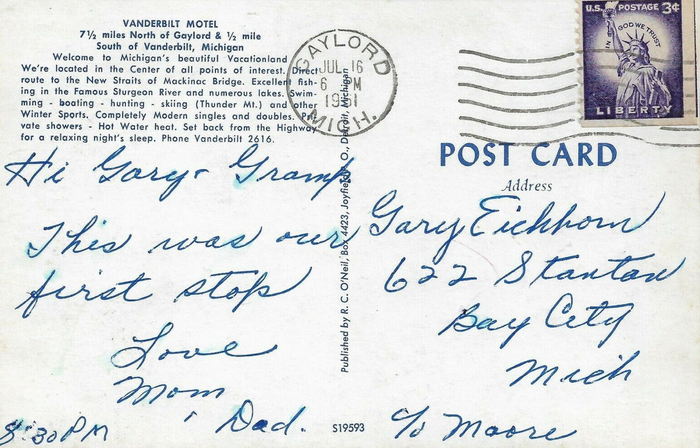 VANDERBILT MOTEL
7½ miles North of Gaylord & ½ mile
South of Vanderbilt, Michigan
Welcome to Michigan's beautiful Vacationland
We're located in the Center of all points of interest. Direct
route to the New Straits of Mackinac Bridge. Excellent fish-
ing in the Famous Sturgeon River and numerous lakes. Swim-
ming - boating - hunting - skiing (Thunder Mt.) and other
Winter Sports. Completely Modern singles and doubles. Pri-
vate showers - Hot Water heat. Set back from the Highway
for a relaxing night's sleep. Phone Vanderbilt 2616.
Hi Gary - Gramp
This was our
first stop
Love
Mom
, Dad.
8:30 PM
Published by R. C. O'Neil, Box 4423, Joyfield P. O., Detroit, Michigan
S19593
GAYLORD
JUL 16
6 PM
1961
MICH.
U.S. POSTAGE 3¢
IN GOD WE TRUST
LIBERTY
POST CARD
Address
Gary Eichhorn
622 Stanton
Bay City
Mich
c/o Moore